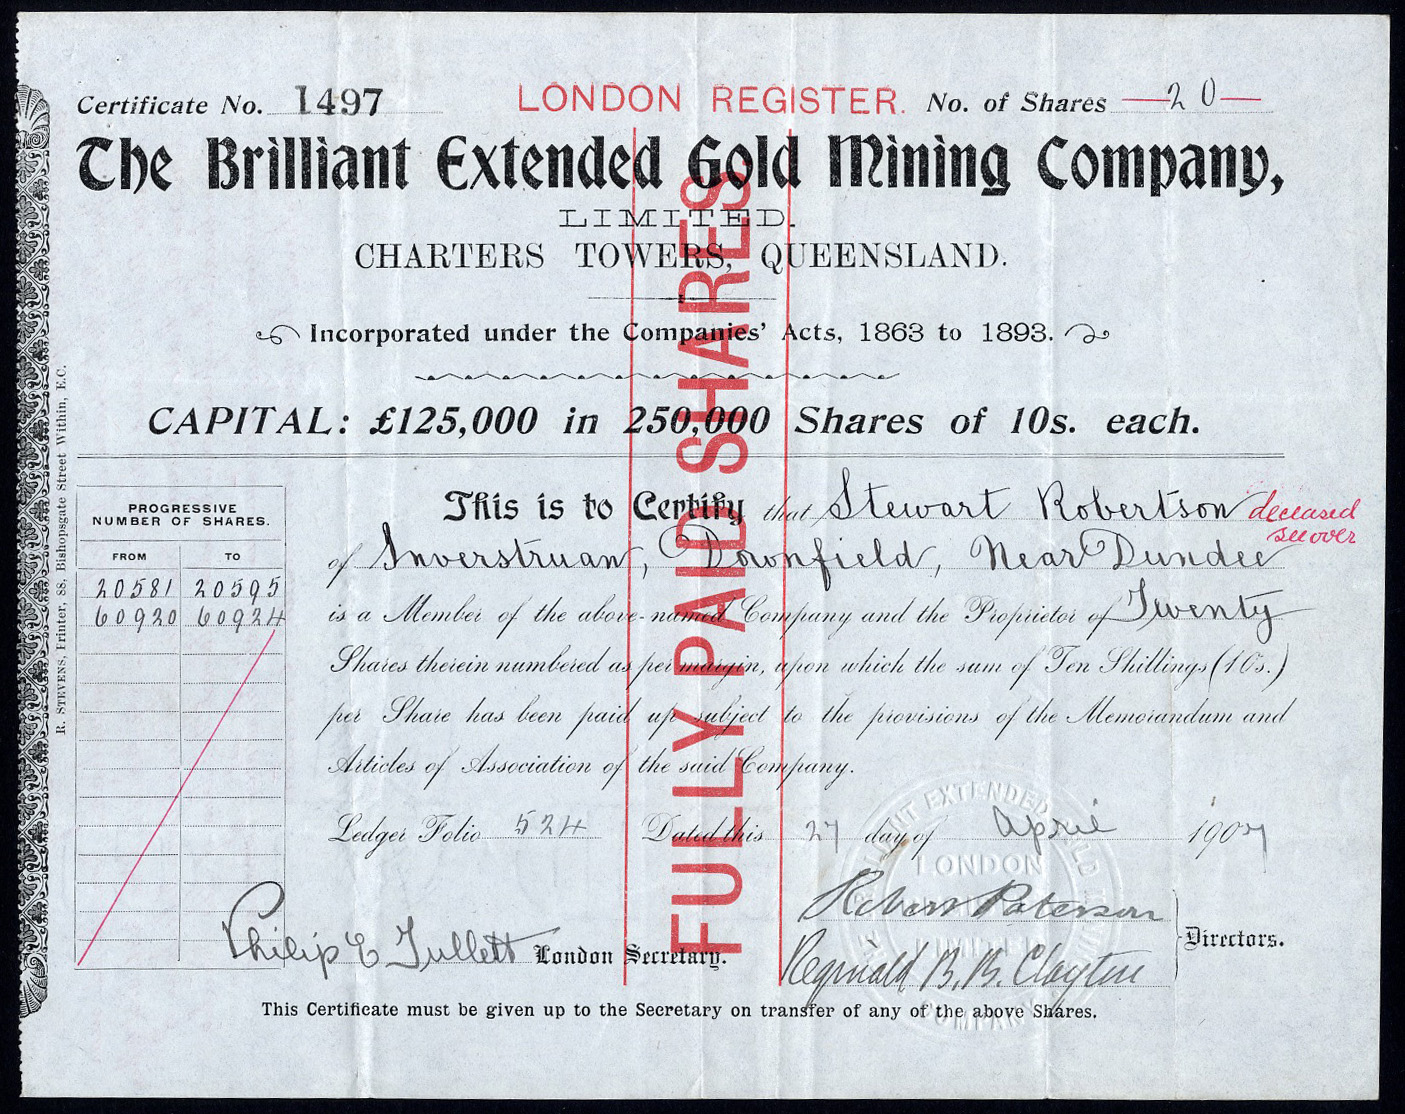 Certificate No. 1497 LONDON REGISTER. No. of Shares —20—
The Brilliant Extended Gold Mining Company,
LIMITED.
CHARTERS TOWERS, QUEENSLAND.
Incorporated under the Companies' Acts, 1863 to 1893.
CAPITAL: £125,000 in 250,000 Shares of 10s. each.
FULLY PAID SHARES.
R. STEVENS, Printer, 88, Bishopsgate Street Within, E.C.
PROGRESSIVE
NUMBER OF SHARES.
FROM TO
20581 20595
60920 60924
This is to Certify that Stewart Robertson deceased
see over
of Inverstruan, Downfield, Near Dundee
is a Member of the above-named Company and the Proprietor of Twenty
Shares therein numbered as per margin, upon which the sum of Ten Shillings (10s.)
per Share has been paid up subject to the provisions of the Memorandum and
Articles of Association of the said Company.
Ledger Folio 524 Dated this 27 day of April 1907
Robert Paterson
Philip E Tullett London Secretary. Reginald B. B. Clayton Directors.
BRILLIANT EXTENDED GOLD MINING
LONDON
LIMITED
COMPANY
This Certificate must be given up to the Secretary on transfer of any of the above Shares.